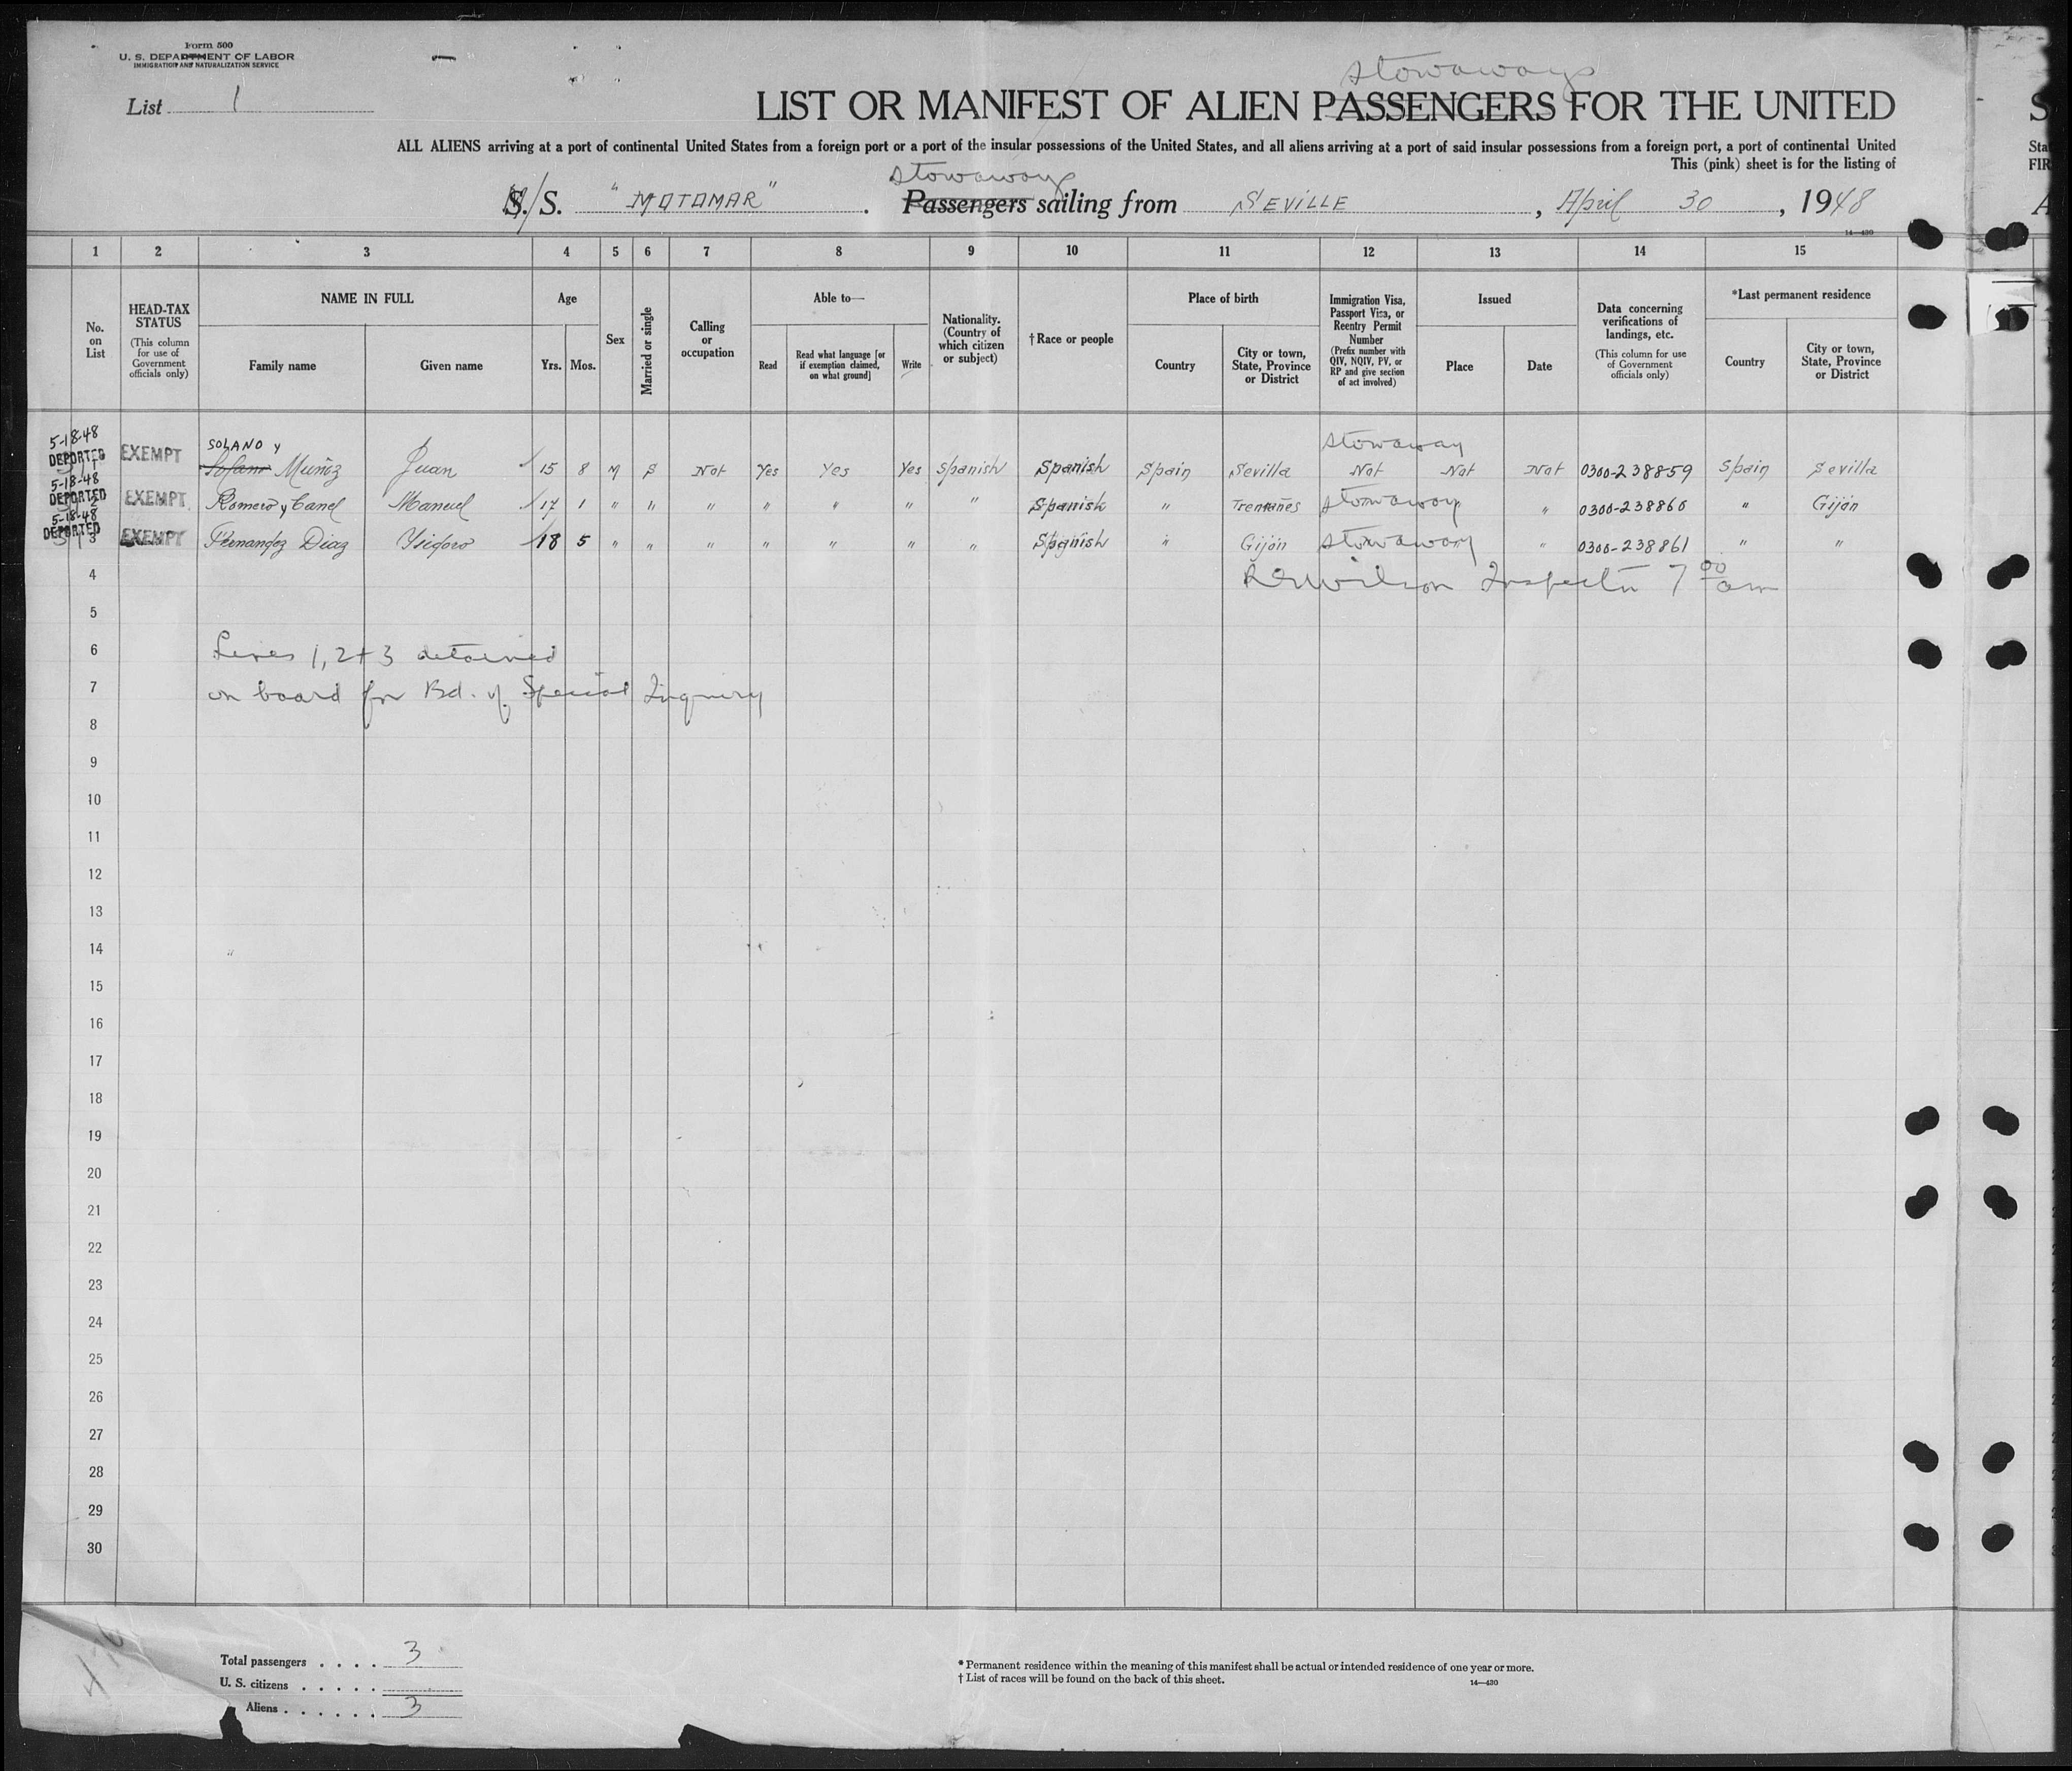 Form 500
U. S. DEPARTMENT OF LABOR
IMMIGRATION AND NATURALIZATION SERVICE
List 1
stowaways
LIST OR MANIFEST OF ALIEN PASSENGERS FOR THE UNITED
S
ALL ALIENS arriving at a port of continental United States from a foreign port or a port of the insular possessions of the United States, and all aliens arriving at a port of said insular possessions from a foreign port, a port of continental United
Sta
This (pink) sheet is for the listing of
FIR
stowaways
M/S. "MOTOMAR". Passengers sailing from SEVILLE, April 30, 1948
A
14—430
1 2 3 4 5 6 7 8 9 10 11 12 13 14 15
No. on List
HEAD-TAX STATUS
(This column for use of Government officials only)
NAME IN FULL
Family name
Given name
Age
Yrs. Mos.
Sex
Married or single
Calling or occupation
Able to—
Read
Read what language [or if exemption claimed, on what ground]
Write
Nationality. (Country of which citizen or subject)
†Race or people
Place of birth
Country
City or town, State, Province or District
Immigration Visa, Passport Visa, or Reentry Permit Number
(Prefix number with QIV, NQIV, PV, or RP and give section of act involved)
Issued
Place
Date
Data concerning verifications of landings, etc.
(This column for use of Government officials only)
*Last permanent residence
Country
City or town, State, Province or District
5-18-48
SOLANO y
stowaway
DEPORTED 1 EXEMPT Solano Muñoz Juan 15 8 M S Not Yes Yes Yes Spanish Spanish Spain Sevilla Not Not Not 0300-238859 Spain Sevilla
5-18-48
DEPORTED 2 EXEMPT Romero y Canel Manuel 17 1 " " " " " " " Spanish " Tremañes stowaway " 0300-238860 " Gijón
5-18-48
DEPORTED 3 EXEMPT Fernandez Diaz Ysidoro 18 5 " " " " " " " Spanish " Gijón stowaway " 0300-238861 " "
4 Wilson Inspector 7 00 am
5
6 Lines 1, 2 + 3 detained
7 on board for Bd. of Special Inquiry
8
9
10
11
12
13
14
15
16
17
18
19
20
21
22
23
24
25
26
27
28
29
30
Total passengers . . . . 3
U. S. citizens . . . . .
Aliens . . . . . . 3
* Permanent residence within the meaning of this manifest shall be actual or intended residence of one year or more.
† List of races will be found on the back of this sheet.
14—430